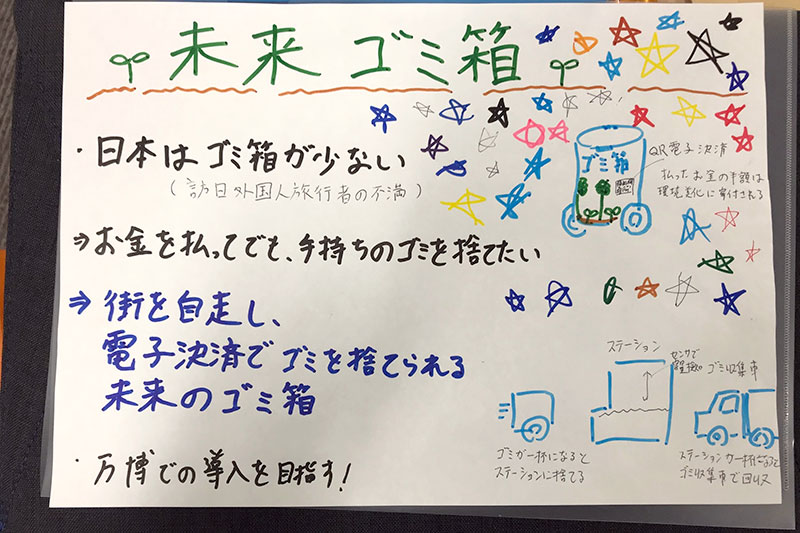 未来 ゴミ箱
・日本は ゴミ箱が少ない
(訪日外国人旅行者の不満)
⇒お金を払ってでも、手持ちのゴミを捨てたい
⇒街を自走し、
電子決済でゴミを捨てられる
未来のゴミ箱
・万博での導入を目指す!
ゴミ箱
QR電子決済
払ったお金の半額は
に寄付される
ゴミが一杯になると
ステーションに捨てる
ステーション
センサで
ゴミ収集車
ステーションが一杯になると
ゴミ収集車で回収